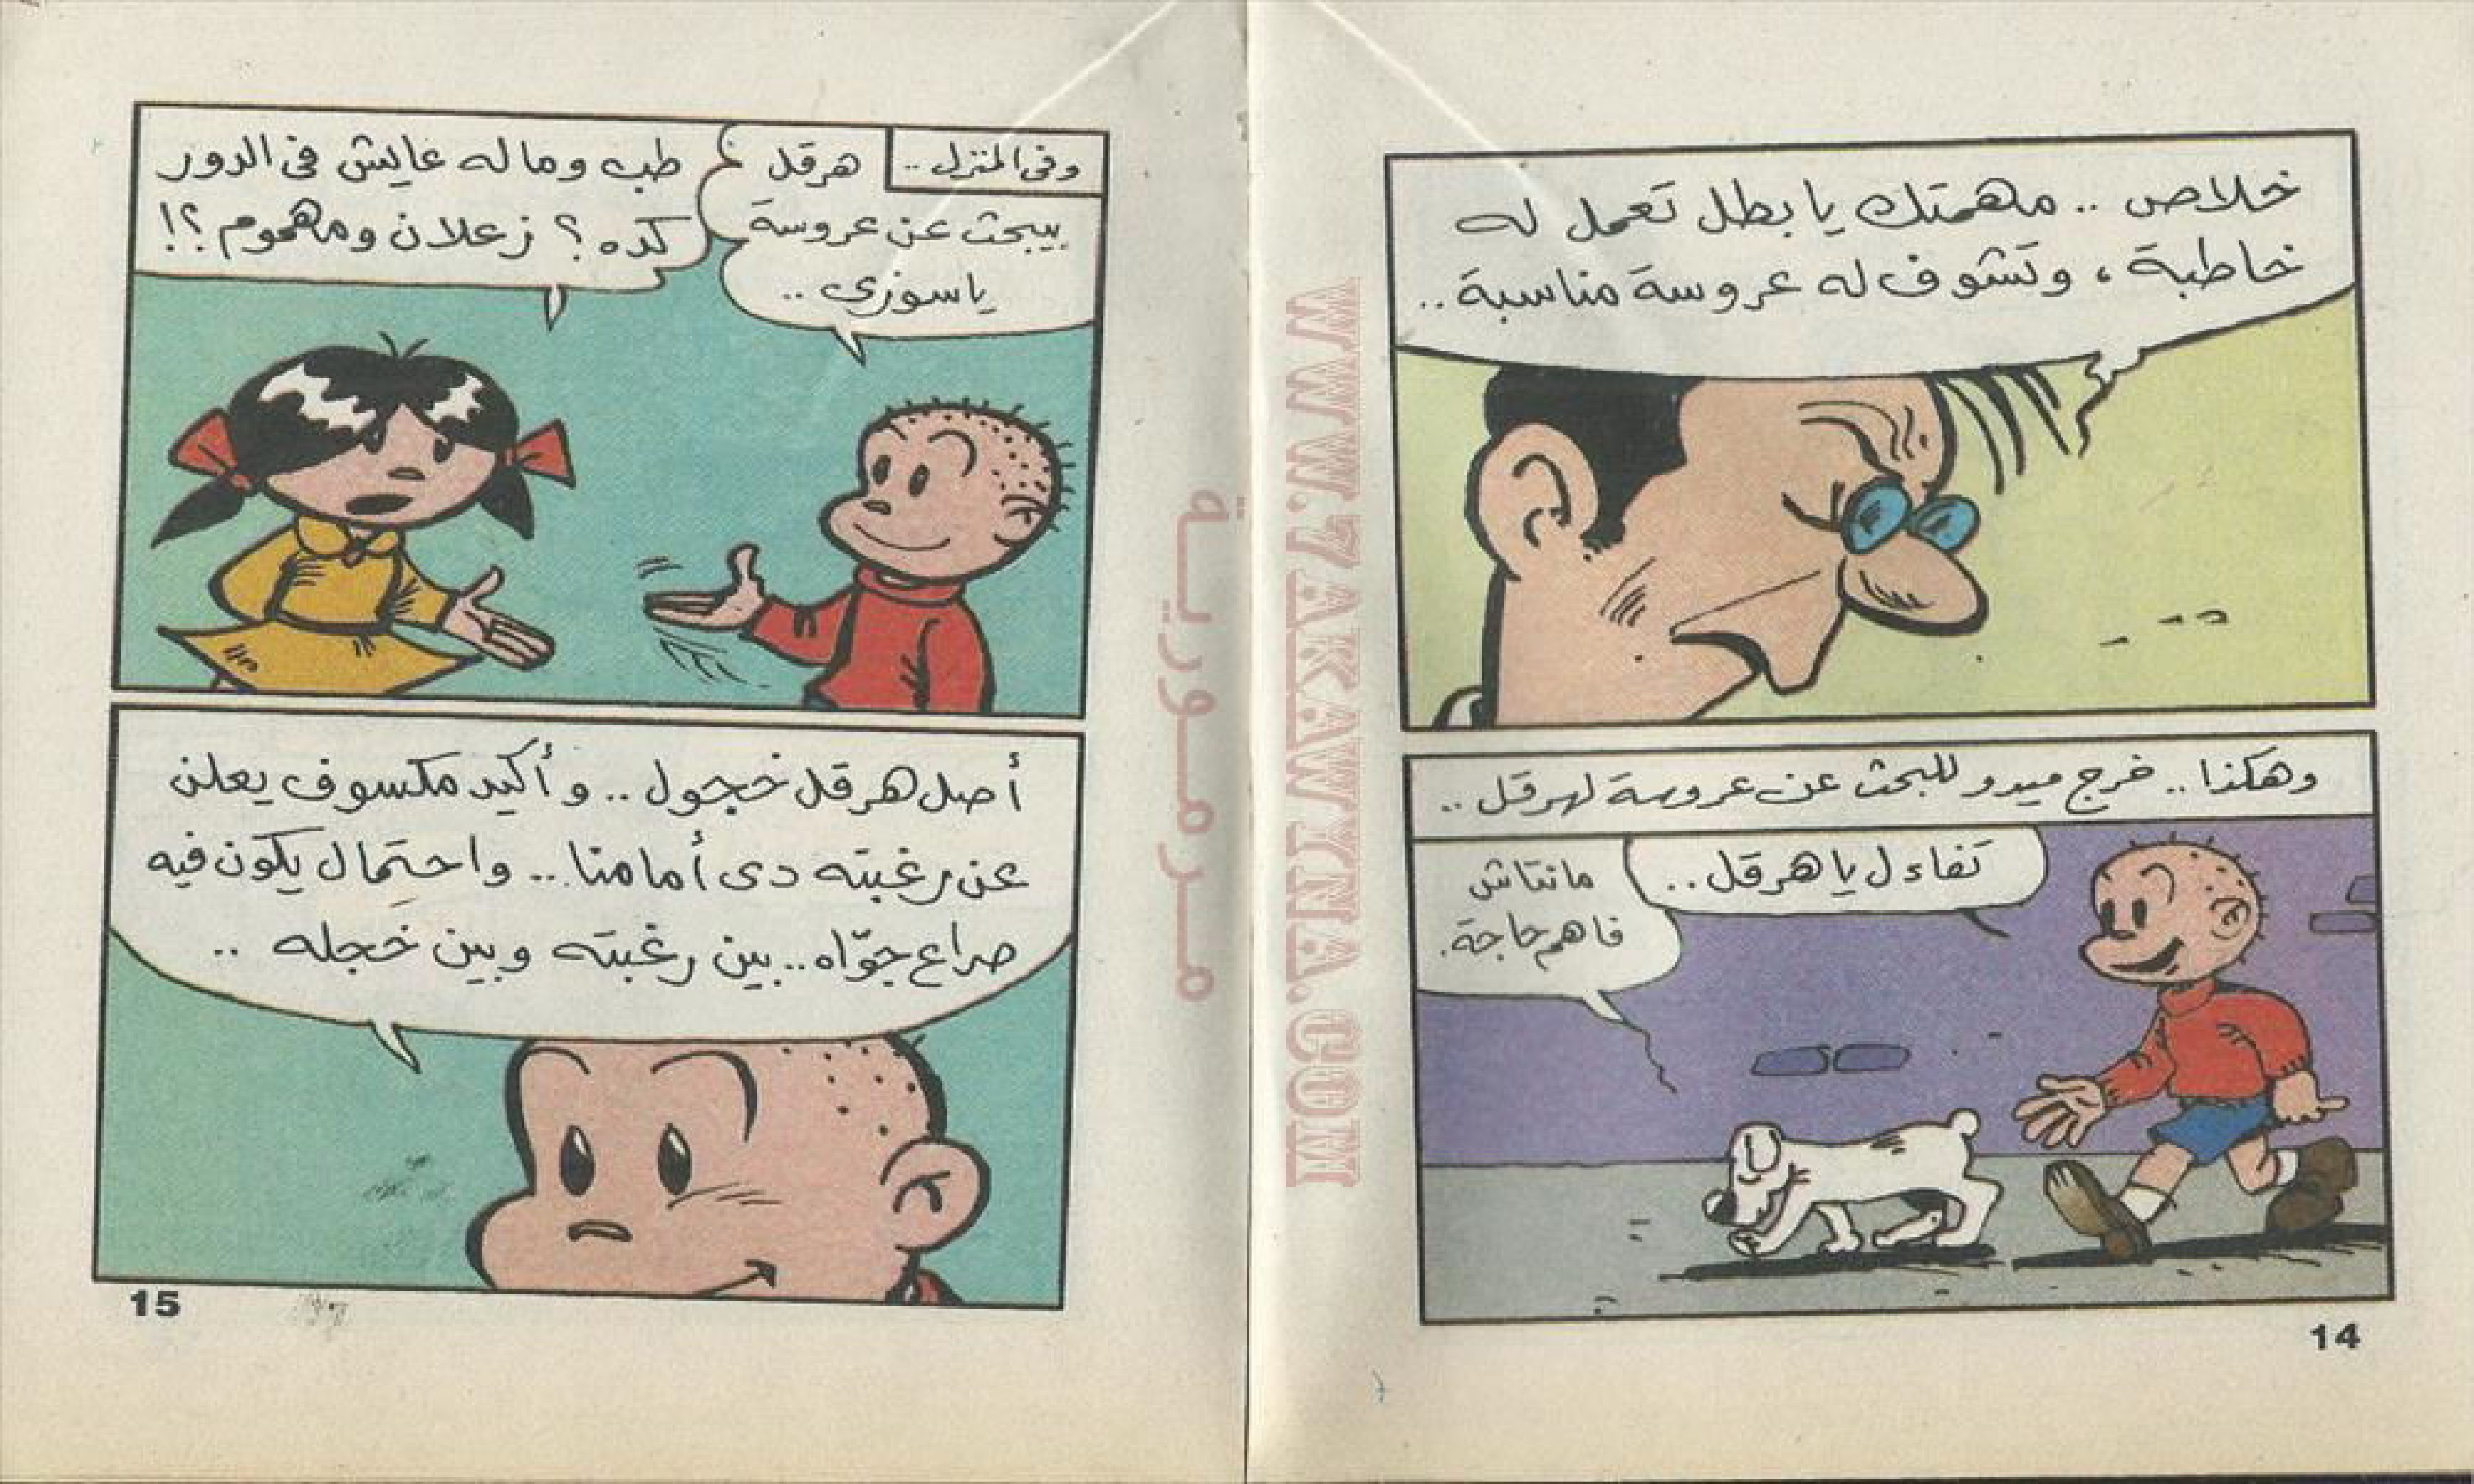 خلاص .. مهمتك يا بطل تعمل له
خاطبة ، وتشوف له عروسة مناسبة ..
وهكذا .. خرج ميدو للبحث عن عروسة لهرقل ..
تفاءل يا هرقل ..
ما نتاش
فاهم حاجة .
14
وفى المنزل ..
هرقل
بيبحث عن عروسة
يا سوزى ..
طب وماله عايش فى الدور
كده ؟ زعلان ومهموم ؟!
أصل هرقل خجول .. وأكيد مكسوف يعلن
عن رغبته دى أمامنا ... واحتمال يكون فيه
صراع جوّاه .. بين رغبته وبين خجله ..
15
مرمورية
WWW.7AKAWYNA.COM